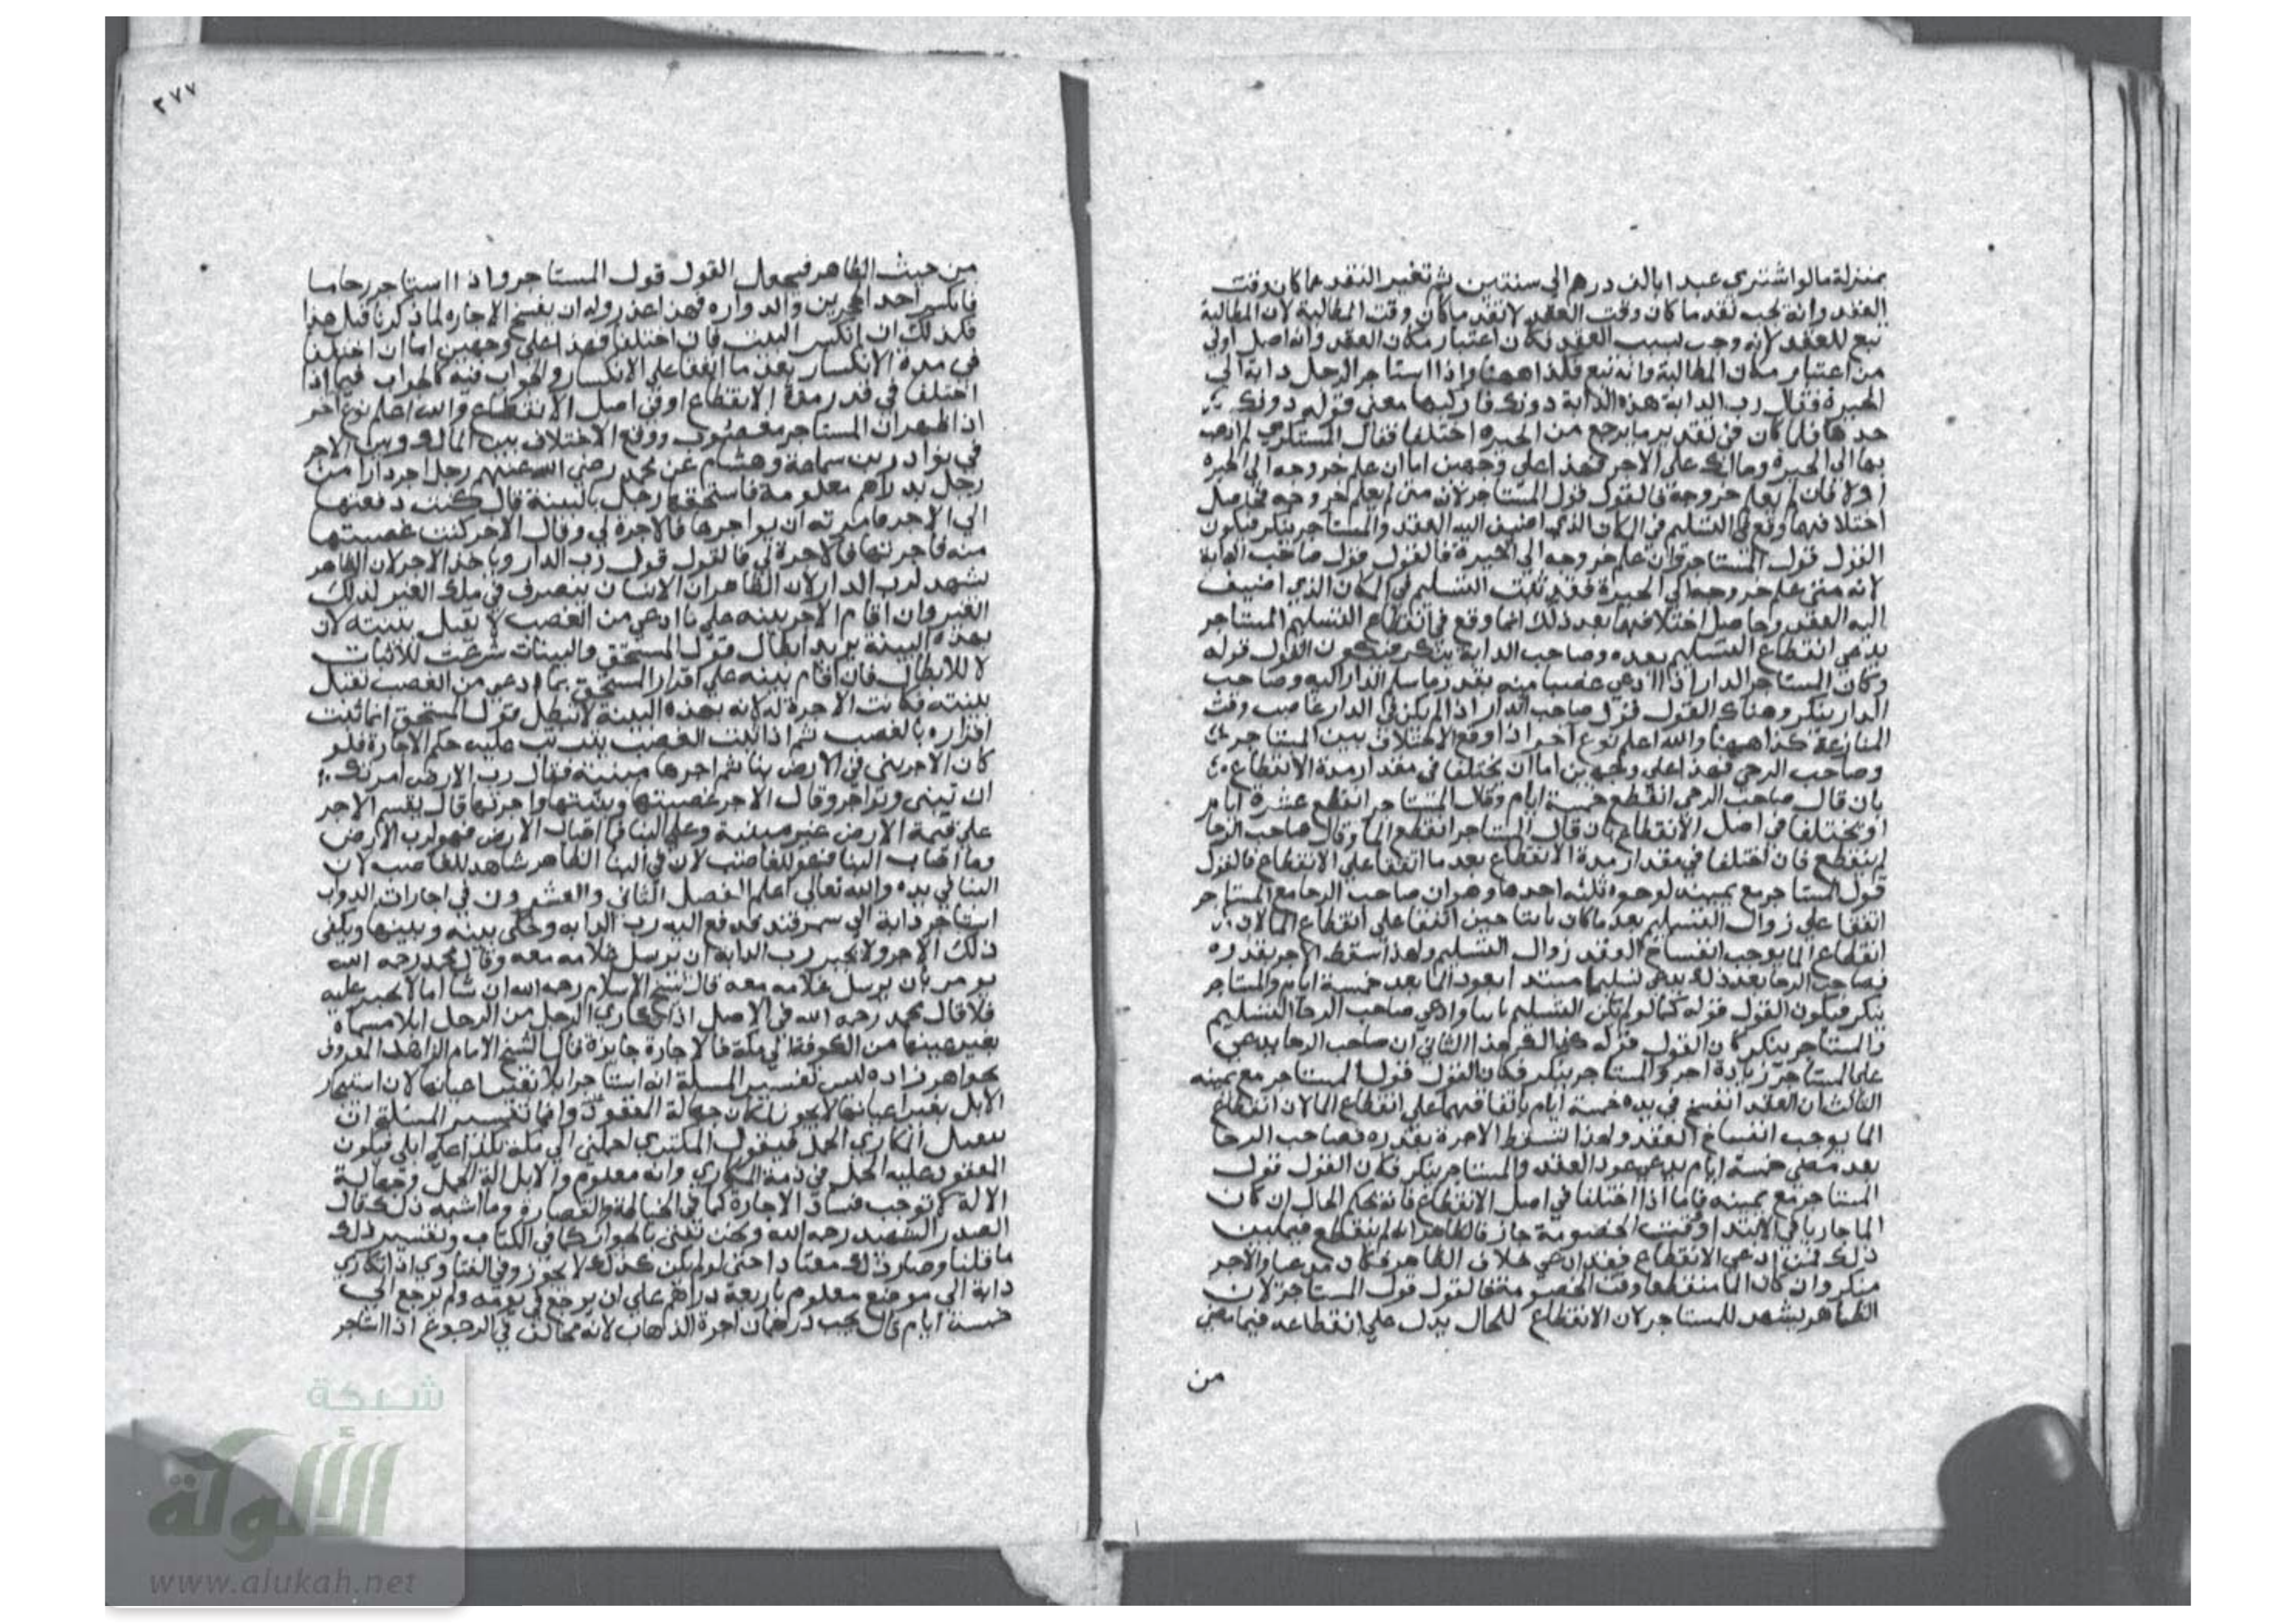 بمنزلة مالواشتري عبدا بالف درهم الي سنتين ثم تغير النقد عما كان وقت
العقد وانه يجب نقد ما كان وقت العقد لا نقد ما كان وقت المطالبة لان المطالبة
تبع للعقد لانه وجب بسبب العقد فكان اعتبار مكان العقد وانه اصل اولي
من اعتبار مكان المطالبة وانه تبع فكذا ههنا واذا استاجر الرجل دابة الي
الحيرة فقال رب الدابة هذه الدابة دونك فاركبها معني قوله دونك
خذها فلما كان في قدر ما يرجع من الحيرة اختلفا فقال المستكري لم اذهب
بها الي الحيرة ومالك علي الاجر فهذا علي وجهين اما ان علم خروجه الي الحيرة
اولا فان لم يعلم خروجه فالقول قول المستاجر لان متي لم يعلم خروجه فحاصل
اختلافهما وقع في التسليم في المكان الذي اضيف اليه العقد والمستاجر ينكر فيكون
القول قول المستاجر وان علم خروجه الي الحيرة فالقول قول صاحب الدابة
لانه متي علم خروجه الي الحيرة فقد ثبت التسليم في المكان الذي اضيف
اليه العقد وحاصل اختلافهما بعد ذلك انما وقع في انقطاع التسليم المستاجر
يدعي انقطاع التسليم بعده وصاحب الدابة ينكر فيكون القول قوله
وكان المستاجر الدار اذا ادعي غصبا منه بعد ما سلم الدار اليه وصاحب
الدار ينكر وهناك القول قول صاحب الدار اذا لم يكن في الدار غاصب وقت
المنازعة كذا ههنا والله اعلم نوع آخر اذا وقع الاختلاف بين المستاجر
وصاحب الرحي فهذا علي وجهين اما ان يختلفا في مقدار مدة الانقطاع
بان قال صاحب الرحي انقطع خمسة ايام وقال المستاجر انقطع عشرة ايام
او يختلفا في اصل الانقطاع بان قال المستاجر انقطع الما وقال صاحب الرحا
لم ينقطع فان اختلفا في مقدار مدة الانقطاع بعد ما اتفقا علي الانقطاع فالقول
قول المستاجر مع يمينه لوجوه ثلثه احدها وهو ان صاحب الرحا مع المستاجر
اتفقا علي زوال التسليم بعد ما كان ثابتا حين اتفقا علي انقطاع الما لان
انقطاع الما يوجب انفساخ العقد زوال التسليم ولهذا سقط الاجر بقدره
فصاحب الرحا بعد ذلك يدعي تسليما مبتدا بعود الما بعد خمسة ايام والمستاجر
ينكر فيكون القول قوله كما لو لم يكن التسليم ثابتا وادعي صاحب الرحا التسليم
والمستاجر ينكر كان القول قوله هذا الثاني ان صاحب الرحا يدعي
علي المستاجر زيادة اجر والمستاجر ينكر فكان القول قول المستاجر مع يمينه
الثالث ان العقد انفسخ في يده خمسة ايام باتفاقهما علي انقطاع الما لان انقطاع
الما يوجب انفساخ العقد ولهذا تسقط الاجرة بقدره فصاحب الرحا
بعد مضي خمسة ايام يدعي عود العقد والمستاجر ينكر فكان القول قول
المستاجر مع يمينه فاما اذا اختلفا في اصل الانقطاع فانه يحكم الحال ان كان
الما جاريا في الابتدا وقت الخصومة جاز فالظاهر انه لم ينقطع فيما بين
ذلك فمن ادعي الانقطاع فقد ادعي خلاف الظاهر فكان مدعيا والآجر
منكر وان كان الما منقطعا وقت الخصومة فالقول قول المستاجر لان
الظاهر يشهد للمستاجر لان الانقطاع للحال يدل علي انقطاعه فيما مضي
من
٢٧٧
من حيث الظاهر فيجعل القول قول المستاجر واذا استاجر رحا ما
فانكسر احد الحجرين والدواره فهذا عذر وله ان يفسخ الاجاره لما ذكرنا قبل هذا
فكذلك ان انكسر البيت فان اختلفا فهذا علي وجهين اما ان اختلفا
في مدة الانكسار بعد ما اتفقا علي الانكسار والجواب فيه كالجواب فيما اذا
اختلفا في قدر مدة الانقطاع او في اصل الانقطاع والله اعلم نوع آخر
اذا ظهر ان المستاجر مغصوب ووقع الاختلاف بين المالك وبين الاجر
في نوادر بن سماعة وهشام عن محمد رضي الله عنهم رجل اجر دارا من
رجل بدراهم معلومة فاستحقها رجل بالبينة قال كنت دفعتها
الي الاجر وامرته ان يواجرها فالاجرة لي وقال الآخر كنت غصبتها
منه فاجرتها فالاجرة لي فالقول قول رب الدار وياخذ الاجر لان الظاهر
يشهد لرب الدار لان الظاهر ان الانسان يتصرف في ملك الغير لذلك
الغير وان اقام الاجر بينه علي ما ادعي من الغصب لا تقبل بينته لان
بهذه البينة يريد ابطال قول المستحق والبينات شرعت للاثبات
لا للابطال فان اقام بينه علي اقرار المستحق بما ادعي من الغصب تقبل
بينته فكانت الاجرة له لانه بهذه البينة لا تبطل قول المستحق انما ثبت
اقراره بالغصب ثم اذا ثبت الغصب يترتب عليه حكم الاجارة فلو
كان الاجر بني في الارض بنا ثم اجرها مبنية فقال رب الارض امرتك
ان تبني وتواجر وقال الاجر غصبتها وبنيتها واجرتها قال يقسم الاجر
علي قيمة الارض غير مبنية وعلي البنا فما اصاب الارض فهو لرب الارض
وما اصاب البنا فهو للغاصب لان في البنا الظاهر شاهد للغاصب لان
البنا في يده والله تعالي اعلم الفصل الثاني والعشرون في اجارات الدواب
استاجر دابة الي سمرقند فدفع اليه رب الدابه وخلي بينه وبينها ويكفي
ذلك الاجر ولا يجبر رب الدابة ان يرسل غلامه معه وقال محمد رحمه الله
يومر بان يرسل غلامه معه قال شيخ الاسلام رحمه الله ان شا اما لا يجبر عليه
فلا قال محمد رحمه الله في الاصل اذا تكاري الرجل من الرجل ابلا مسماه
بغير عينها من الكوفة الي مكة فالاجارة جايزة قال الشيخ الامام الزاهد المعروف
بخواهر زاده ليس تفسير المسلة انه استاجر ابلا بغير اعيانها لان استيجار
الابل بغير اعيانها لا يجوز لمكان جهالة المعقود وانما تفسير المسئلة ان
يتقبل المكاري الحمل فيقول المكتري احملني الي مكة بكذا علي ابلي فيكون
المعقود عليه الحمل في ذمة المكاري وانه معلوم والابل آلة الحمل وجهالة
الالة لا توجب فساد الاجارة كما في الخياطة والقصارة وما اشبه ذلك قال
الصدر الشهيد رحمه الله ونحن نفتي بالجواز كما في الكتاب وتفسير ذلك
ما قلنا وصار ذلك معتادا حتي لو لم يكن كذلك لا يجوز وفي الفتاوي اذا تكاري
دابة الي موضع معلوم باربعة دراهم علي ان يرجع في يومه ولم يرجع الي
خمسة ايام قال يجب درهمان اجرة الذهاب لانه مخالف في الرجوع اذا استاجر
شبكة
الألوكة
www.alukah.net